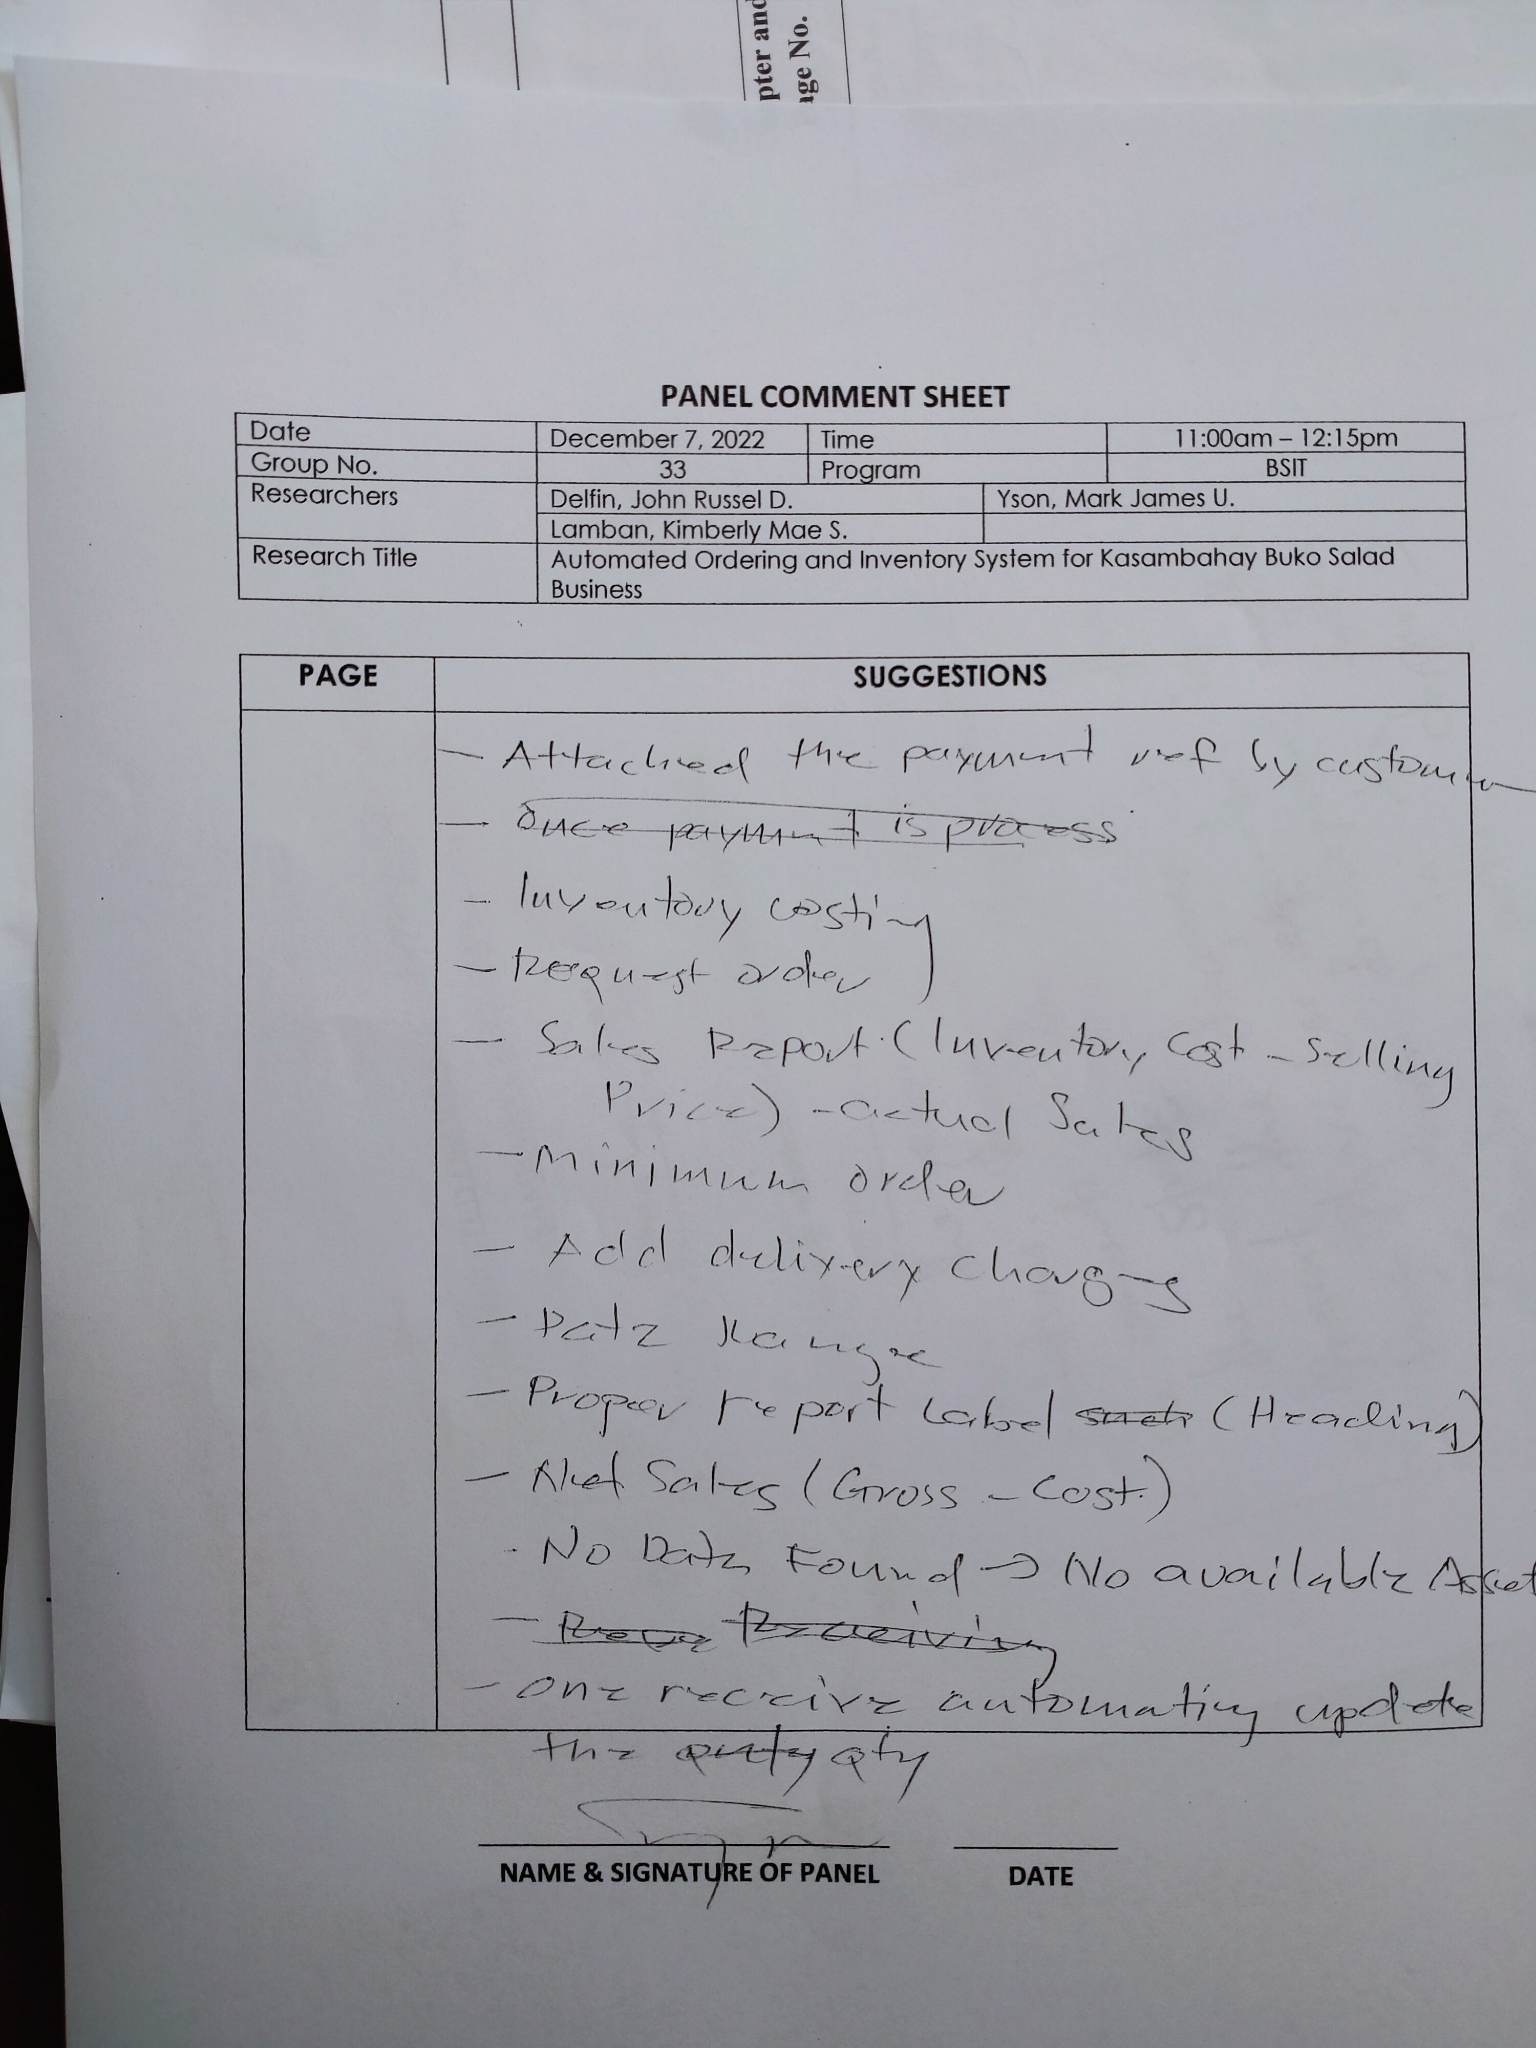 pter and
age No.
PANEL COMMENT SHEET
Date December 7, 2022 Time 11:00am – 12:15pm
Group No. 33 Program BSIT
Researchers Delfin, John Russel D. Yson, Mark James U.
Lamban, Kimberly Mae S.
Research Title Automated Ordering and Inventory System for Kasambahay Buko Salad
Business
PAGE SUGGESTIONS
- Attached the payment ref by customer
- once payment is process
- Inventory costing
- Request order
- Sales Report (Inventory Cost - Selling
Price) - actual Sales
- Minimum order
- Add delivery charges
- Date Range
- Proper report Label such (Heading)
- Net Sales (Gross - Cost.)
- No Data Found → No available Asset
- Receiving
- One receive automating update
the qty
NAME & SIGNATURE OF PANEL DATE